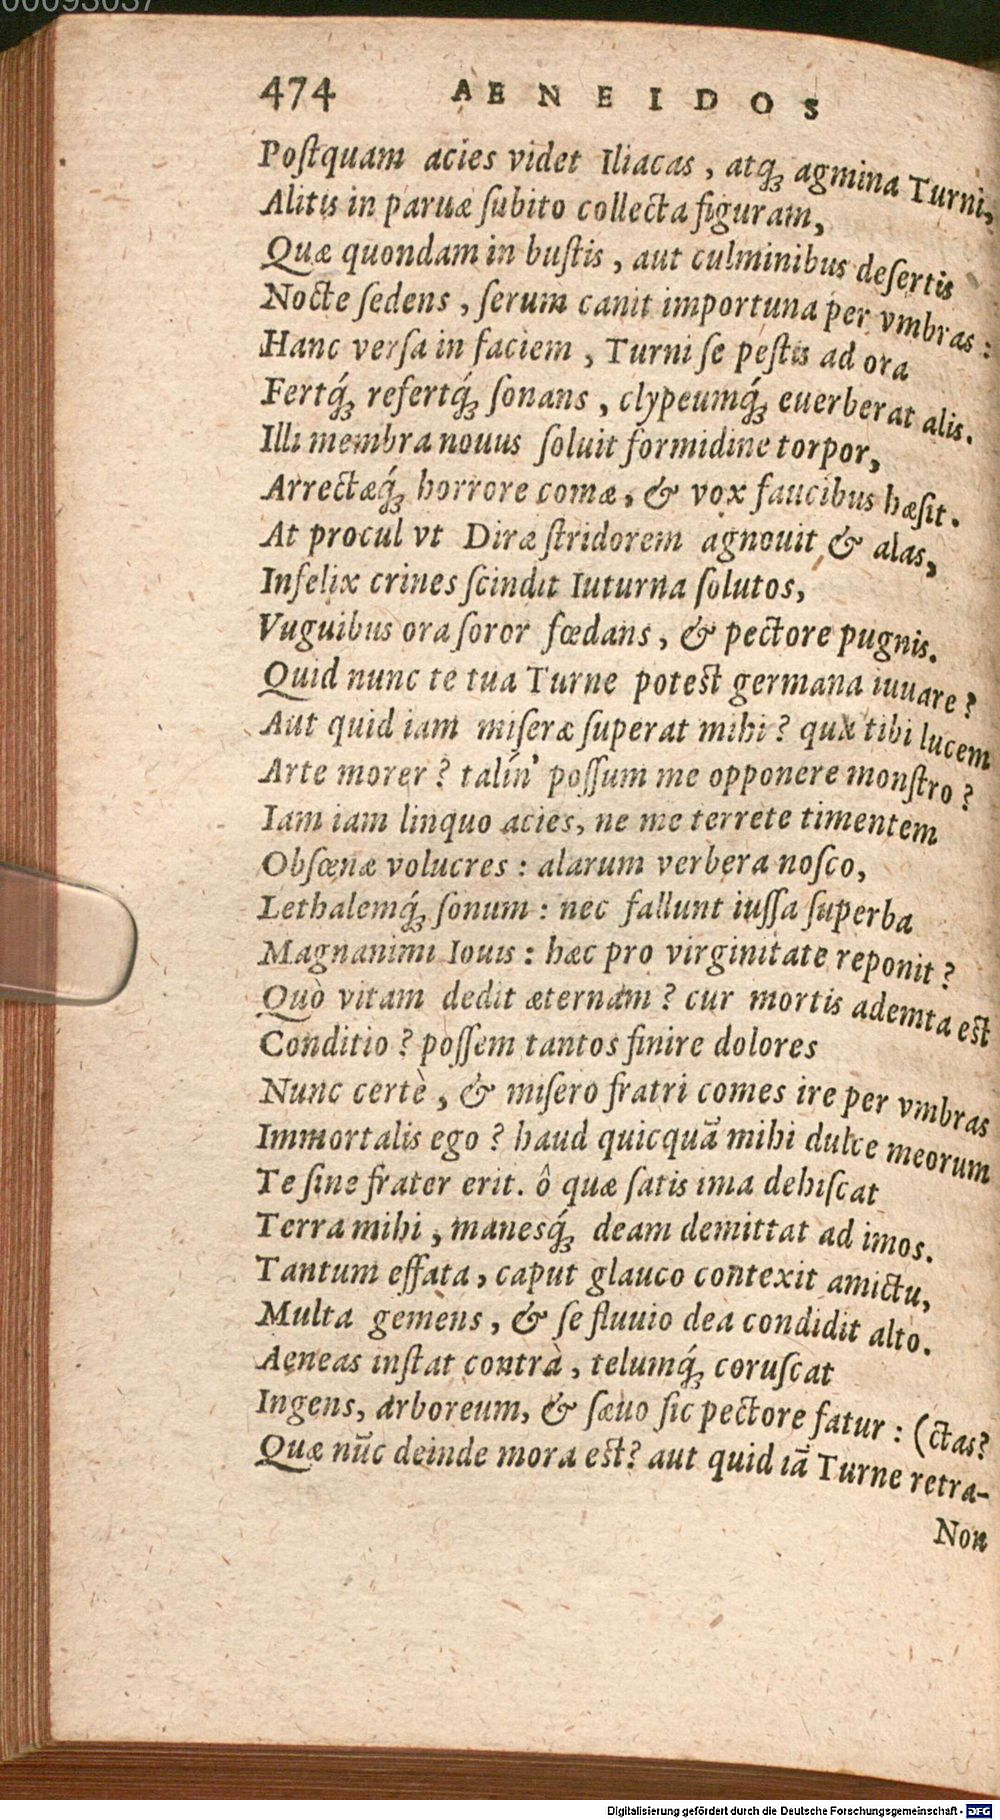 00093037
474 AENEIDOS
Poſtquam acies videt Iliacas, atq́; agmina Turni,
Alitis in paruæ ſubito collecta figuram,
Quæ quondam in buſtis, aut culminibus deſertis
Nocte ſedens, ſerum canit importuna per vmbras:
Hanc verſa in faciem, Turni ſe peſtis ad ora
Fertq́; refertq́; ſonans, clypeumq́; euerberat alis.
Illi membra nouus ſoluit formidine torpor,
Arrectæq́; horrore comæ, & vox faucibus hæſit.
At procul vt Diræ ſtridorem agnouit & alas,
Infelix crines ſcindit Iuturna ſolutos,
Vuguibus ora ſoror fœdans, & pectore pugnis.
Quid nunc te tua Turne poteſt germana iuuare?
Aut quid iam miſeræ ſuperat mihi? qua tibi lucem
Arte morer? talín' poſſum me opponere monſtro?
Iam iam linquo acies, ne me terrete timentem
Obſcœnæ volucres: alarum verbera noſco,
Lethalemq́; ſonum: nec fallunt iuſſa ſuperba
Magnanimi Iouis: hæc pro virginitate reponit?
Quò vitam dedit æternam? cur mortis ademta eſt
Conditio? poſſem tantos finire dolores
Nunc certè, & miſero fratri comes ire per vmbras
Immortalis ego? haud quicquā mihi dulce meorum
Te ſine frater erit. ô quæ ſatis ima dehiſcat
Terra mihi, manesq́; deam demittat ad imos.
Tantum effata, caput glauco contexit amictu,
Multa gemens, & ſe fluuio dea condidit alto.
Aeneas inſtat contrà, telumq́; coruſcat
Ingens, arboreum, & ſæuo ſic pectore fatur: (ctas?
Quæ nūc deinde mora eſt? aut quid iā Turne retra-
Non
Digitalisierung gefördert durch die Deutsche Forschungsgemeinschaft - DFG